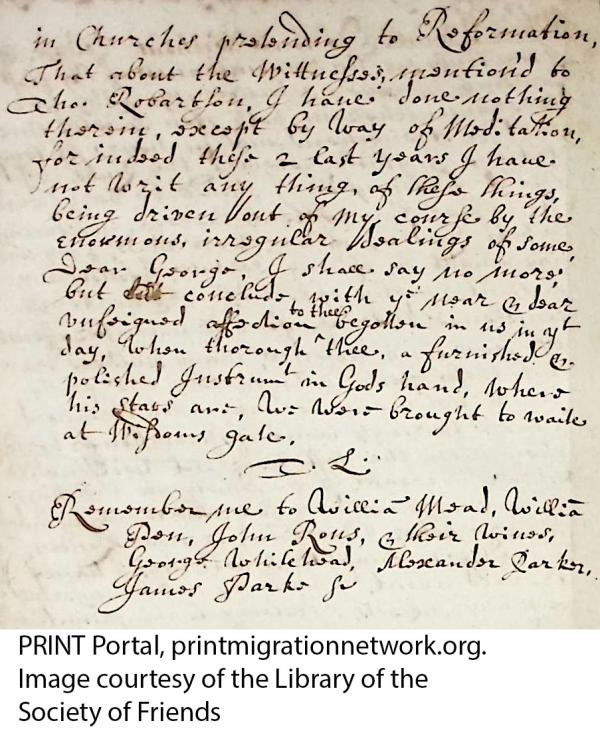 in Churches pretending to Reformation,
That about the Wittnesses, mention'd to
Tho. Robartson, I have done nothing
therein, except by Way of Meditation,
for indeed these 2 last years I have
not Writ any thing, of these things,
being driven out of my course by the
enormous, irregular Dealings of some,
Dear George, I shall say no more,
but conclude, with yt near & dear
unfeigned affection to thee begotten in us in yt
day, When thorough thee, a furnished &
polished Instrumt in Gods hand, where
his Stars are, We Were brought to waite
at Wisdoms gate.
T. L.
Remember me to Willia Mead, Willia
Pen, John Rous, & their Wives,
George Whitehead, Alexander Parker,
James Parke &c
PRINT Portal, printmigrationnetwork.org.
Image courtesy of the Library of the
Society of Friends